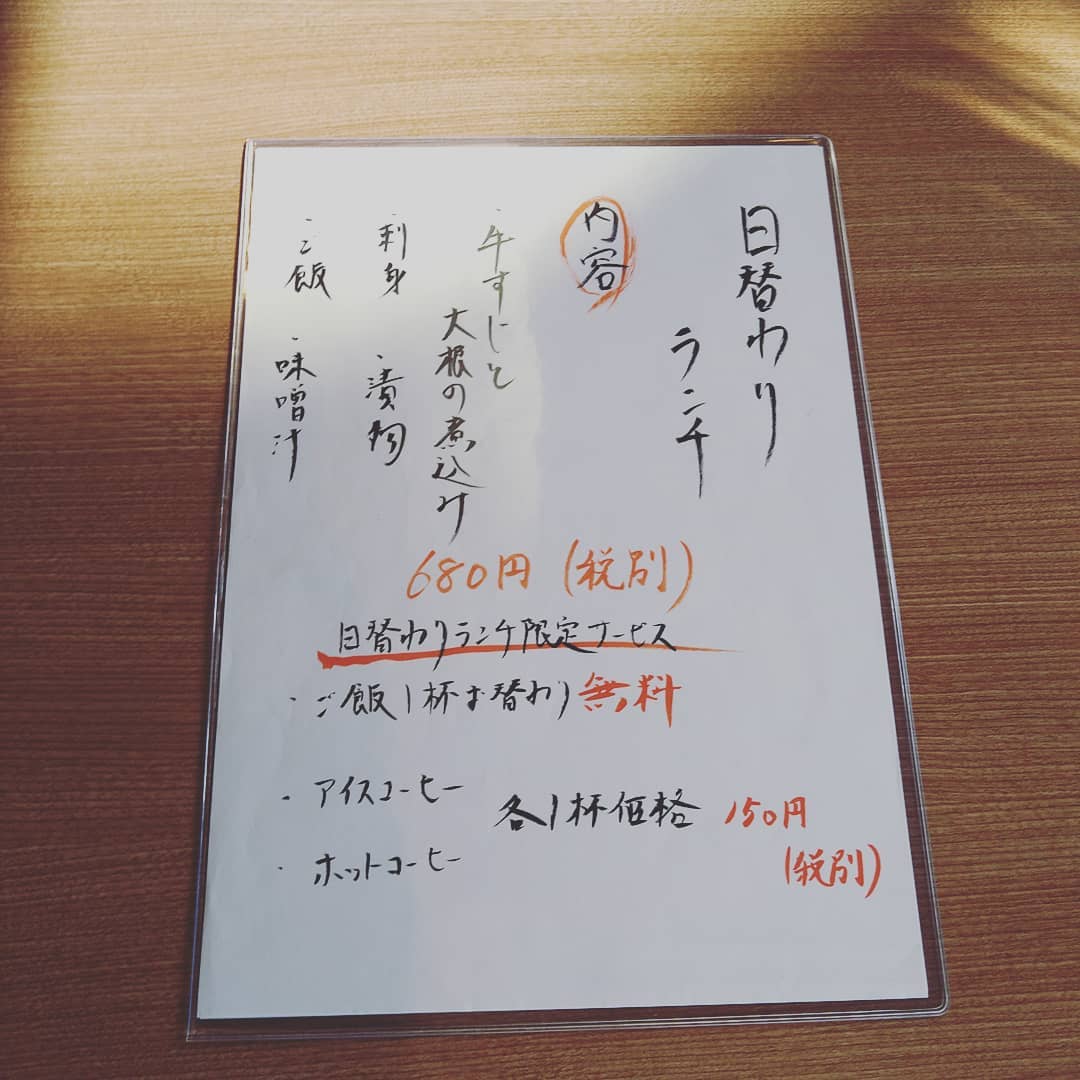 日替わり
ランチ
内容
・牛すじと
大根の煮込み
・刺身 ・漬物
・ご飯 ・味噌汁
680円(税別)
日替わりランチ限定サービス
・ご飯1杯お替わり無料
・アイスコーヒー
各1杯価格 150円
(税別)
・ホットコーヒー